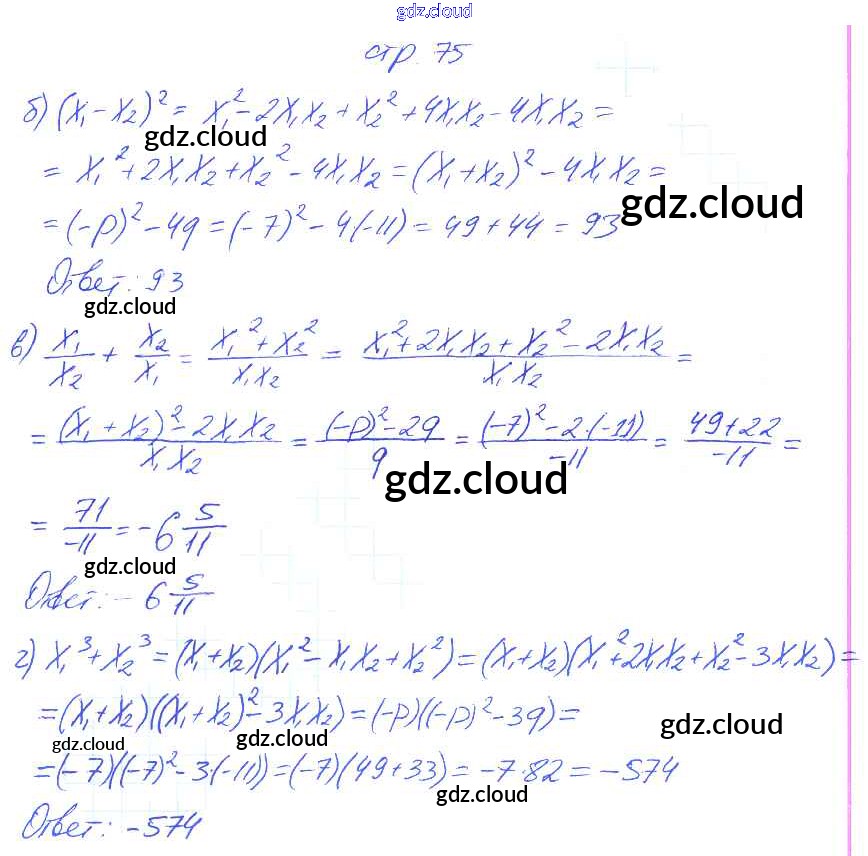 gdz.cloud
стр. 75
б) (x₁ - x₂)² = x₁² - 2x₁x₂ + x₂² + 4x₁x₂ - 4x₁x₂ =
gdz.cloud
= x₁² + 2x₁x₂ + x₂² - 4x₁x₂ = (x₁ + x₂)² - 4x₁x₂ =
gdz.cloud
= (-p)² - 4q = (-7)² - 4(-11) = 49 + 44 = 93
Ответ: 93
gdz.cloud
в) x₁/x₂ + x₂/x₁ = (x₁² + x₂²)/(x₁x₂) = (x₁² + 2x₁x₂ + x₂² - 2x₁x₂)/(x₁x₂) =
= ((x₁ + x₂)² - 2x₁x₂)/(x₁x₂) = ((-p)² - 2q)/q = ((-7)² - 2·(-11))/(-11) = (49 + 22)/(-11) =
gdz.cloud
= 71/(-11) = -6 5/11
gdz.cloud
Ответ: -6 5/11
г) x₁³ + x₂³ = (x₁ + x₂)(x₁² - x₁x₂ + x₂²) = (x₁ + x₂)(x₁² + 2x₁x₂ + x₂² - 3x₁x₂) =
= (x₁ + x₂)((x₁ + x₂)² - 3x₁x₂) = (-p)((-p)² - 3q) =
gdz.cloud
gdz.cloud
gdz.cloud
= (-7)((-7)² - 3(-11)) = (-7)(49 + 33) = -7·82 = -574
gdz.cloud
Ответ: -574